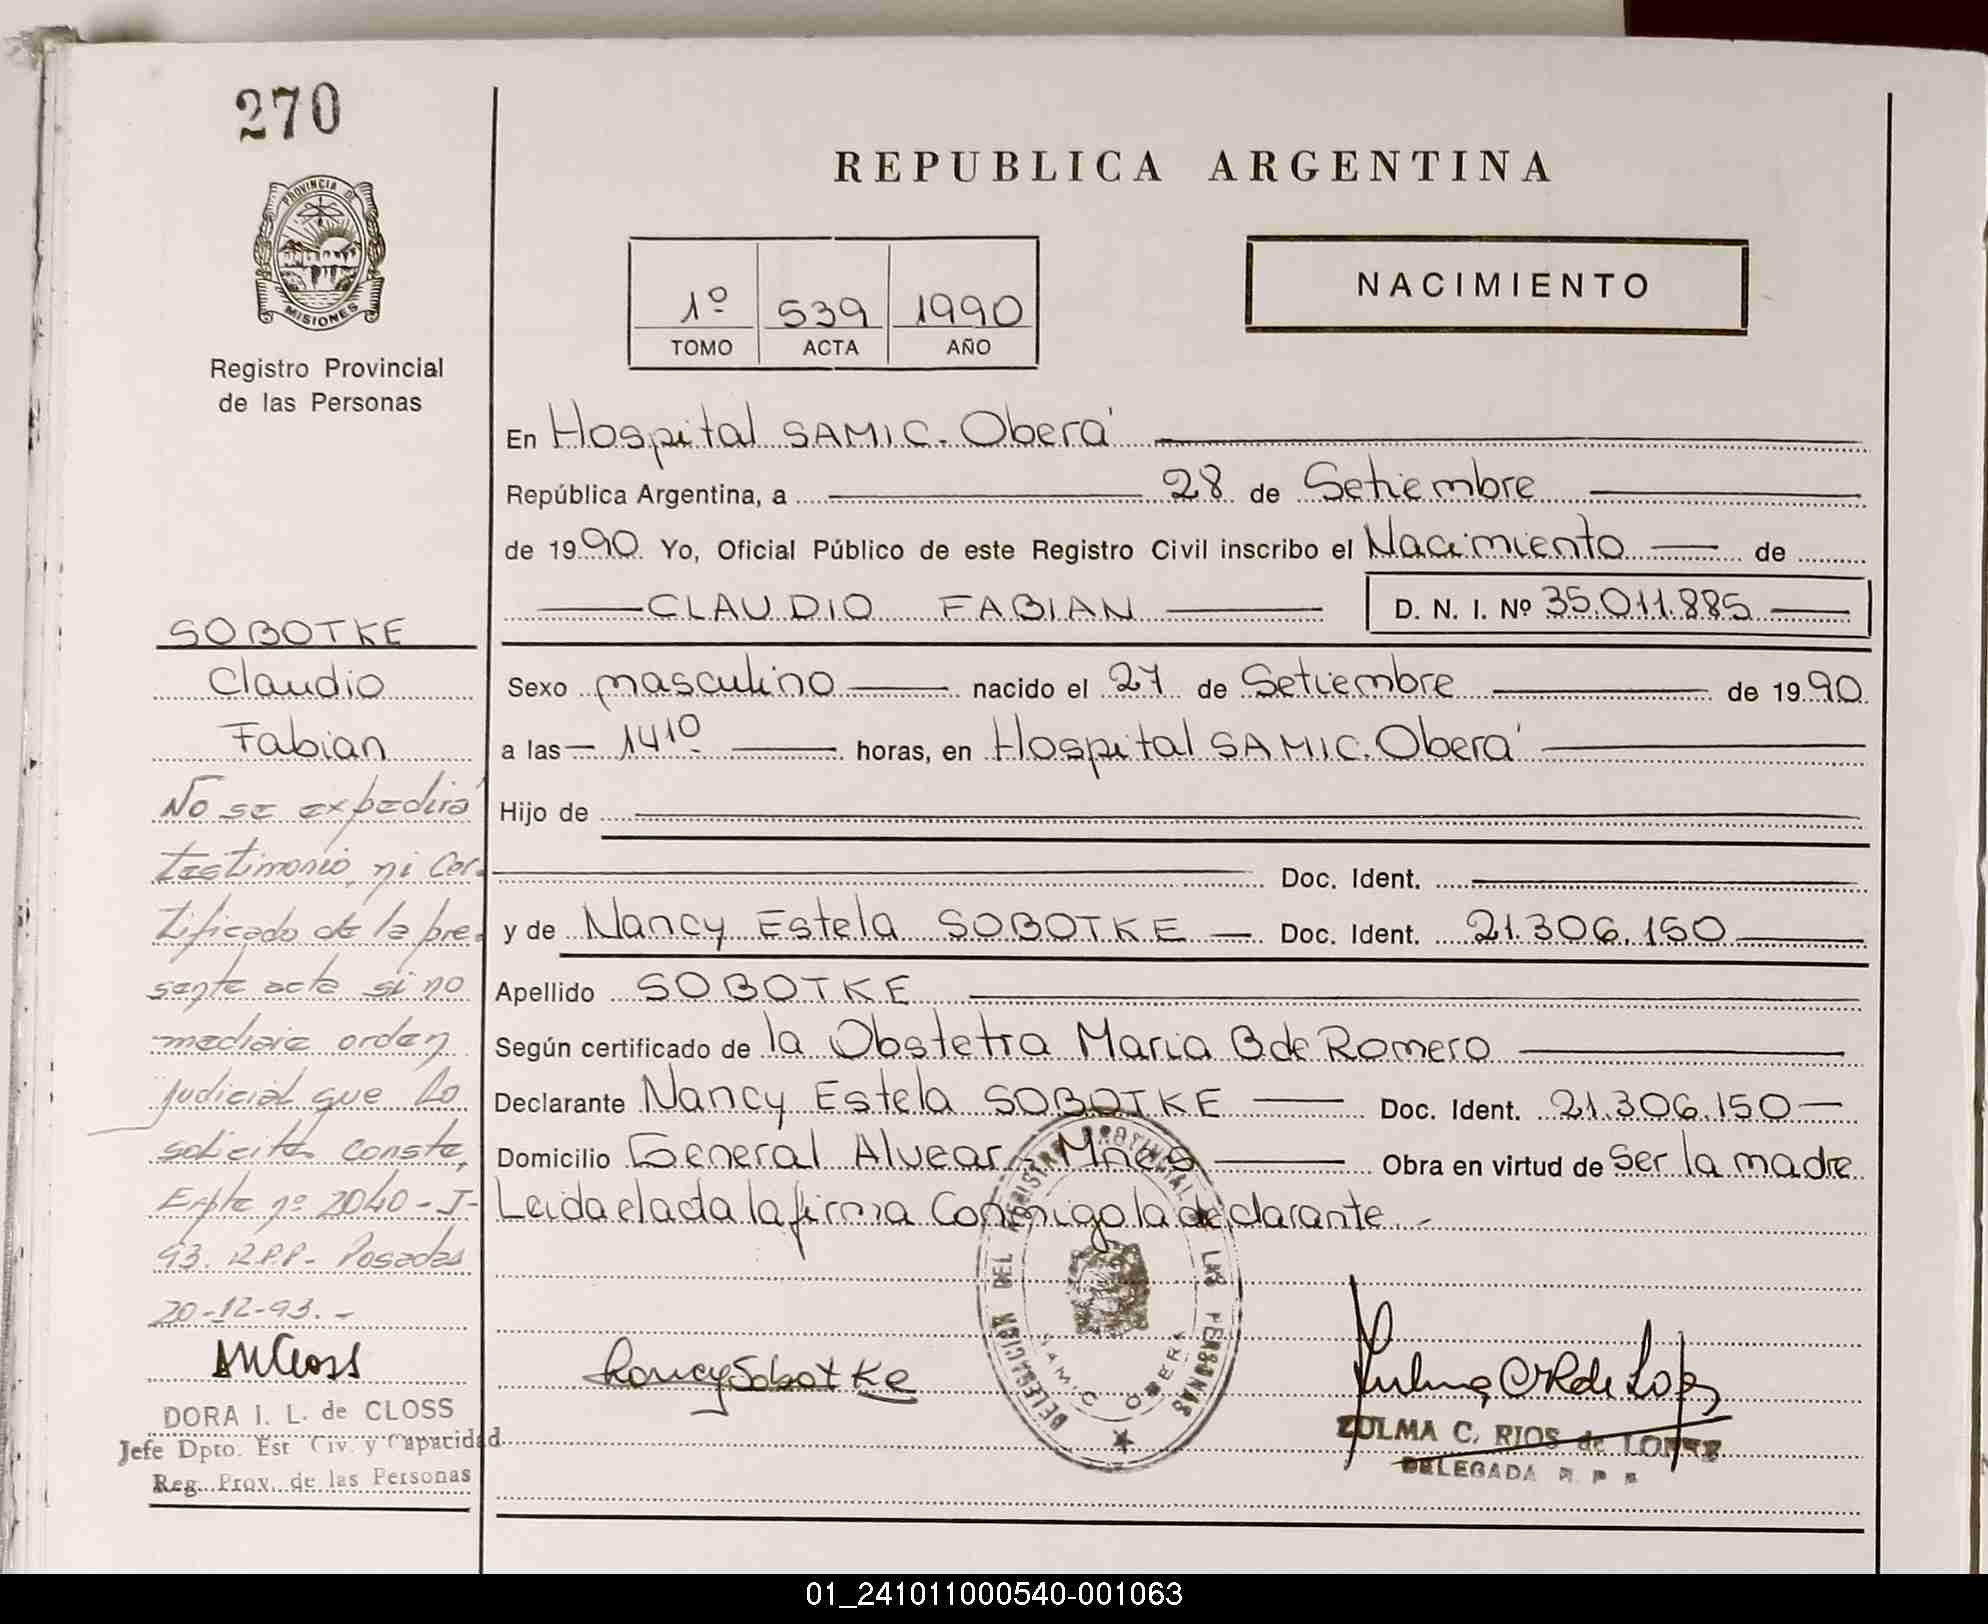 270
REPUBLICA ARGENTINA
PROVINCIA DE
MISIONES
Registro Provincial
de las Personas
1º 539 1990
TOMO ACTA AÑO
NACIMIENTO
En Hospital SAMIC. Oberá
República Argentina, a 28 de Setiembre
de 1990 Yo, Oficial Público de este Registro Civil inscribo el Nacimiento de
CLAUDIO FABIAN D. N. I. Nº 35.011.885
Sexo masculino nacido el 27 de Setiembre de 1990
a las 14¹⁰ horas, en Hospital SAMIC. Oberá
Hijo de
Doc. Ident.
y de Nancy Estela SOBOTKE Doc. Ident. 21.306.150
Apellido SOBOTKE
Según certificado de la Obstetra Maria B de Romero
Declarante Nancy Estela SOBOTKE Doc. Ident. 21.306.150
Domicilio General Alvear - Mnes Obra en virtud de Ser la madre
Leida el acta la firma Conmigo la declarante.-
SOBOTKE
Claudio
Fabian
No se expedirá
testimonio, ni Cer-
tificado de la pre-
sente acta si no
mediare orden
judicial que lo
solicite. Conste,
Expte nº 2040-J-
93. R.P.P. - Posadas
20-12-93.-
DORA I. L. de CLOSS
Jefe Dpto. Est Civ. y Capacidad
Reg. Prov. de las Personas
Nancy Sobotke
DELEGACION DEL REGISTRO PROVINCIAL DE LAS PERSONAS
SAMIC OBERA
ZULMA C. RIOS de LOPEZ
DELEGADA R. P. P.
01_241011000540-001063